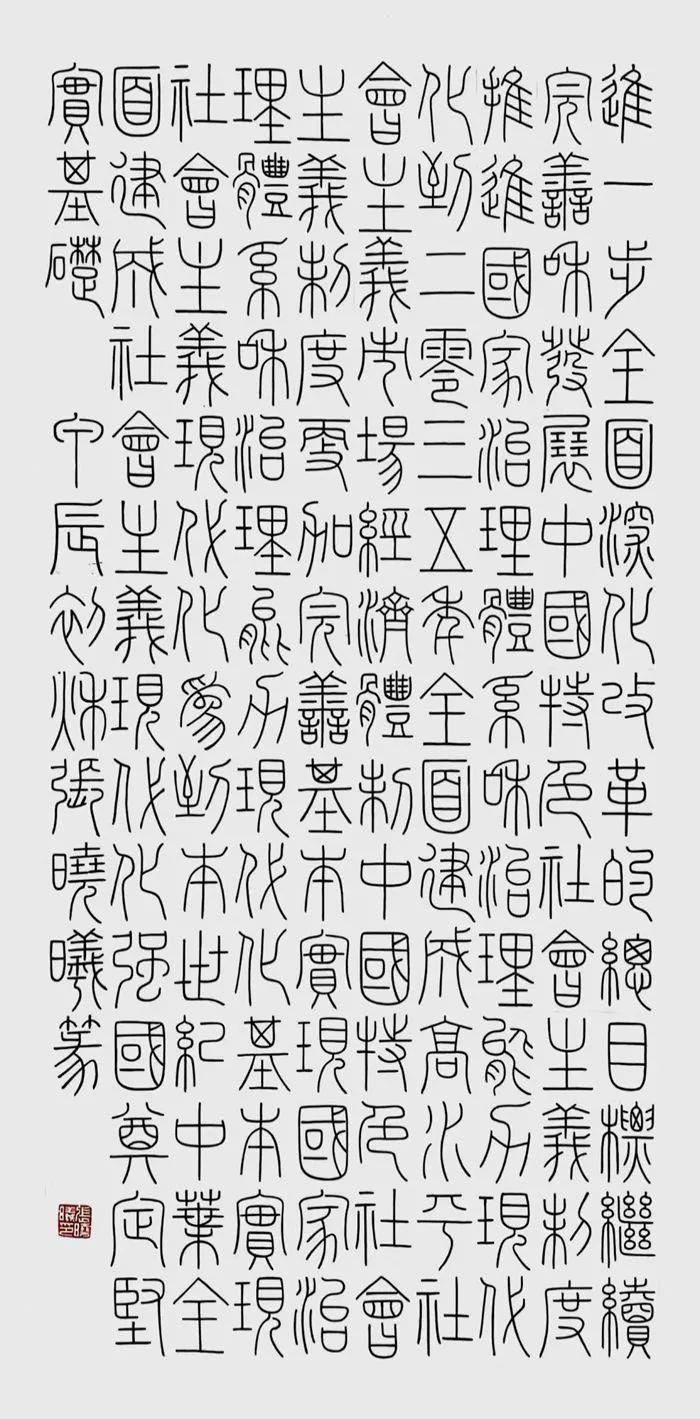 進一步全面深化改革的總目標繼續
完善和發展中國特色社會主義制度
推進國家治理體系和治理能力現代
化到二零三五年全面建成高水平社
會主義市場經濟體制中國特色社會
主義制度更加完善基本實現國家治
理體系和治理能力現代化基本實現
社會主義現代化為到本世紀中葉全
面建成社會主義現代化强國奠定堅
實基礎
甲辰初秋張曉曦篆
張曉曦印